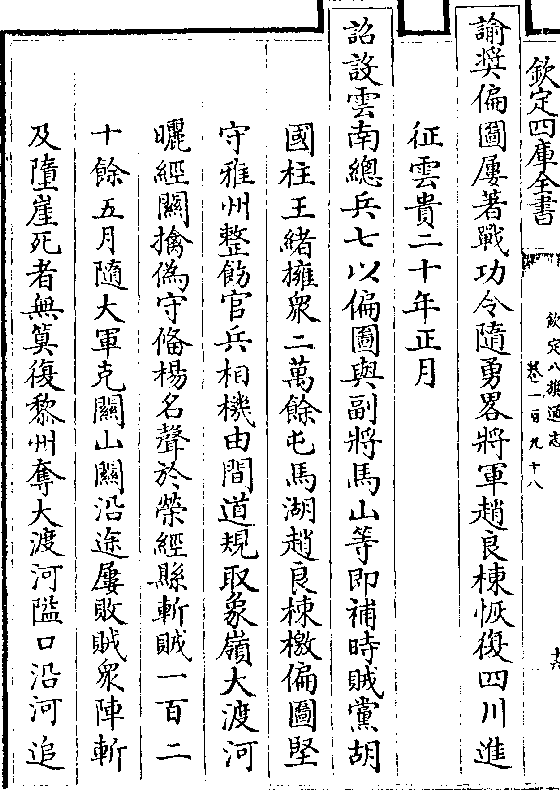 欽定四庫全書
欽定八旗通志
卷一百九十八
諭奬偏圖屢著戰功令隨勇畧將軍趙良棟恢復四川進
征雲貴二十年正月
詔設雲南總兵七以偏圖與副將馬山等即補時賊黨胡
國柱王緒擁衆二萬餘屯馬湖趙良棟檄偏圖堅
守雅州整飭官兵相機由間道規取象嶺大渡河
曬經關擒偽守俻楊名聲於榮經縣斬賊一百二
十餘五月隨大軍克關山關沿途屢敗賊衆陣斬
及墮崖死者無算復黎州奪大渡河隘口沿河追